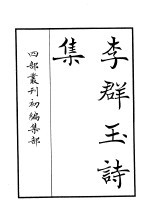 李群玉詩
集
四部叢刊初編集部